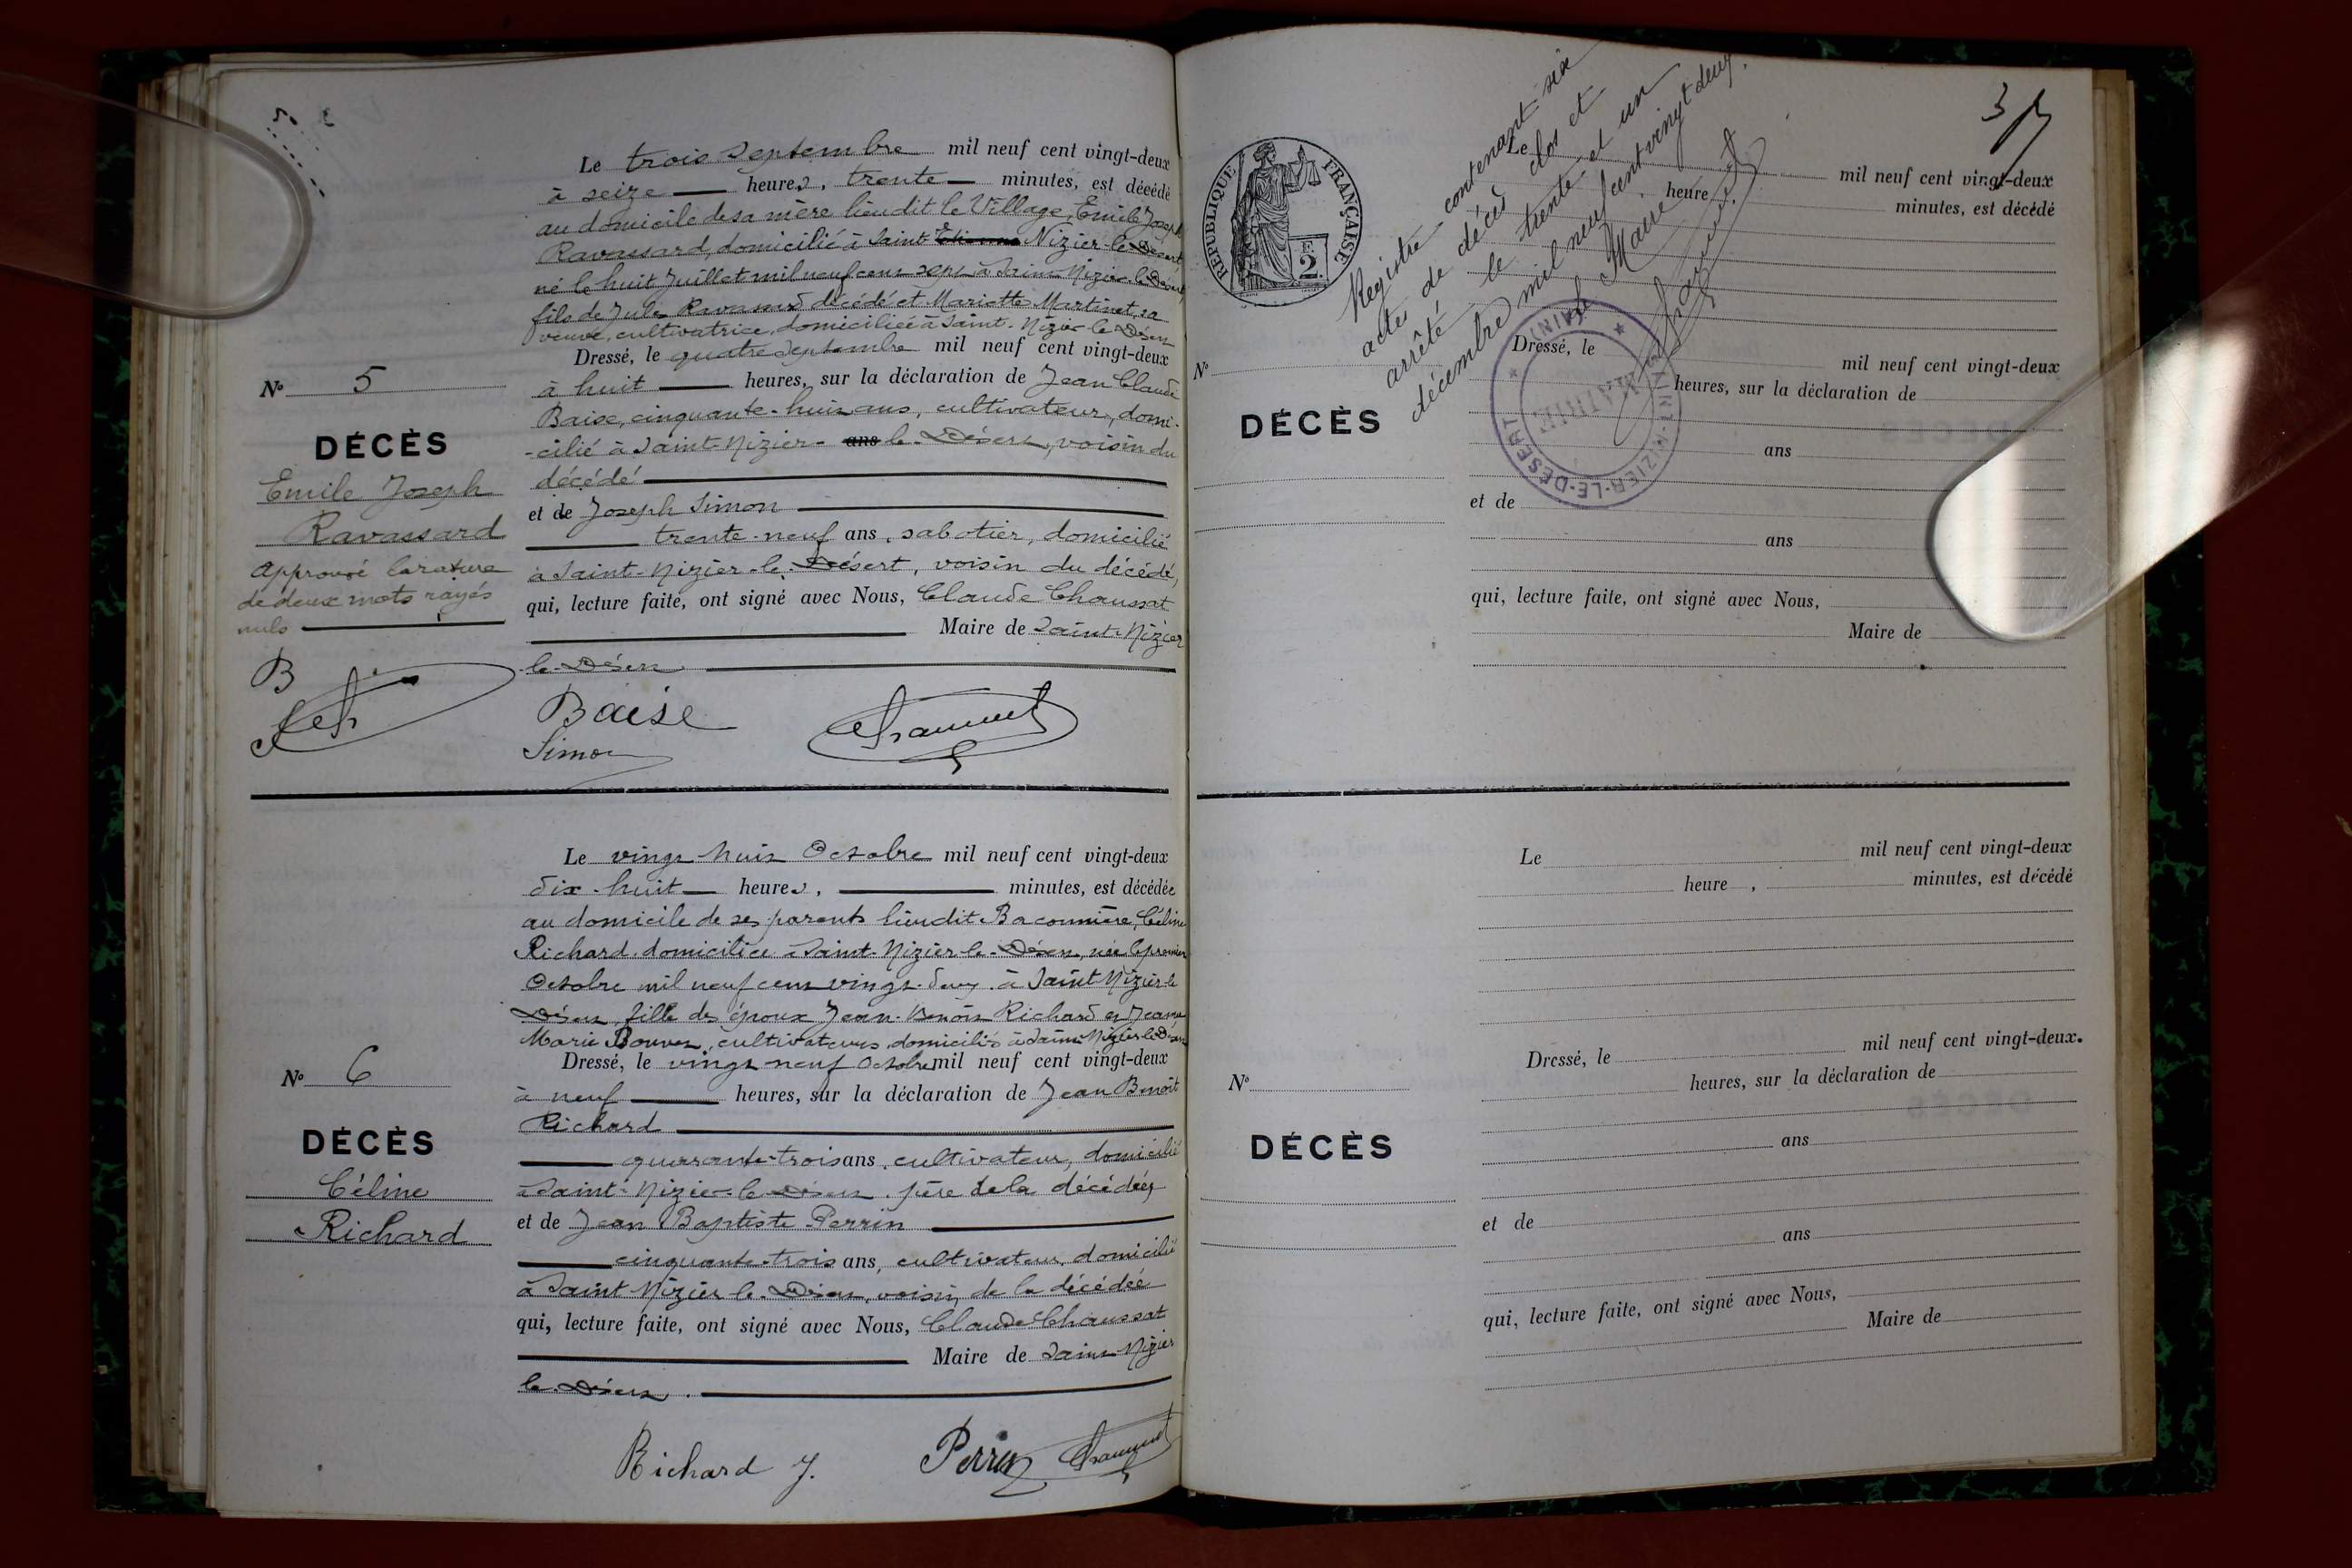 Le trois Septembre mil neuf cent vingt-deux
à seize heures, trente minutes, est décédé
au domicile de sa mère lieu dit le Village, Emile Joseph
Ravassard, domicilié à Saint Etienne Nizier-le-Désert,
né le huit Juillet mil neuf cent sept à Saint-Nizier-le-Désert,
fils de Jules Ravassard décédé et Mariette Martinet, sa
veuve, cultivatrice, domiciliée à Saint-Nizier-le-Désert
Dressé, le quatre Septembre mil neuf cent vingt-deux
à huit heures, sur la déclaration de Jean Claude
Baise, cinquante-huit ans, cultivateur, domi-
-cilié à Saint-Nizier- ans le-Désert, voisin du
décédé
et de Joseph Simon
trente-neuf ans, sabotier, domicilié
à Saint-Nizier-le-Désert, voisin du décédé,
qui, lecture faite, ont signé avec Nous, Claude Chaussat
Maire de Saint-Nizier
le-Désert
N° 5
DÉCÈS
Emile Joseph
Ravassard
Approuvé la rature
de deux mots rayés
nuls
B
Baise
Simon
Chaussat
Le vingt huit Octobre mil neuf cent vingt-deux
dix-huit heures, minutes, est décédée
au domicile de ses parents lieu dit Baconnière, Céline
Richard domiciliée à Saint-Nizier-le-Désert, née le premier
Octobre mil neuf cent vingt-deux à Saint Nizier-le
Désert, fille des époux Jean-Benoît Richard et Jeanne
Marie Bouvet, cultivateurs domiciliés à Saint-Nizier-le-Désert
Dressé, le vingt neuf Octobre mil neuf cent vingt-deux
à neuf heures, sur la déclaration de Jean Benoît
Richard
quarante-trois ans, cultivateur, domicilié
à Saint-Nizier-le-Désert, père de la décédée,
et de Jean Baptiste Perrin
cinquante-trois ans, cultivateur, domicilié
à Saint Nizier le-Désert, voisin de la décédée
qui, lecture faite, ont signé avec Nous, Claude Chaussat
Maire de Saint-Nizier
le-Désert.
N° 6
DÉCÈS
Céline
Richard
Richard J.
Perrin
Chaussat
37
RÉPUBLIQUE FRANÇAISE
F.
2
Registre contenant six
actes de décès clos et
arrêté le trente et un
décembre mil neuf cent vingt deux.
Le Maire
Chaussat
MAIRIE
ST NIZIER-LE-DÉSERT
(AIN)
Le mil neuf cent vingt-deux
heure minutes, est décédé
Dressé, le mil neuf cent vingt-deux
heures, sur la déclaration de
ans
et de
ans
qui, lecture faite, ont signé avec Nous,
Maire de
N°
DÉCÈS
Le mil neuf cent vingt-deux
heure , minutes, est décédé
Dressé, le mil neuf cent vingt-deux.
heures, sur la déclaration de
ans
et de
ans
qui, lecture faite, ont signé avec Nous,
Maire de
N°
DÉCÈS